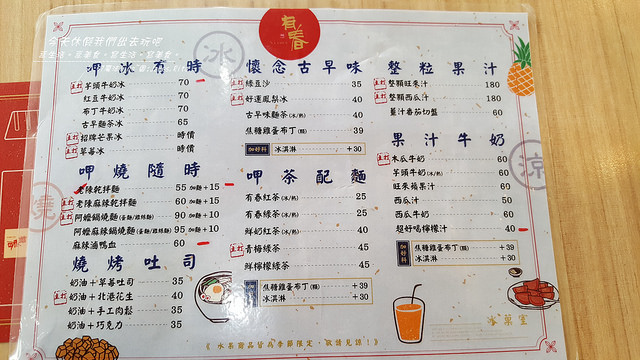 今天休假我們出去玩吧
有春
冰
呷冰有時
主打 芋頭牛奶冰 70
紅豆牛奶冰 70
布丁牛奶冰 70
古早麵茶冰 65
主打 招牌芒果冰 時價
主打 草莓冰 時價
呷燒隨時
老陳乾拌麵 55 加麵+15
主打 老陳麻辣乾拌麵 60 加麵+15
主打 阿嬤鍋燒麵(意麵/雞絲麵) 90 加麵+10
阿嬤麻辣鍋燒麵(意麵/雞絲麵) 95 加麵+10
麻辣滷鴨血 60
燒烤吐司
奶油+草莓吐司 35
主打 奶油+北港花生 40
奶油+手工肉鬆 35
奶油+巧克力 35
燒
懷念古早味
主打 綠豆沙 35
主打 好運鳳梨冰 40
古早味麵茶(冰/熱) 40
焦糖雞蛋布丁(顆) 39
加好料 冰淇淋 +30
呷茶配麵
有春紅茶(冰/熱) 25
有春綠茶(冰/熱) 25
鮮奶紅茶(冰/熱) 40
主打 青梅綠茶 45
鮮檸檬綠茶 45
焦糖雞蛋布丁(顆) +39
冰淇淋 +30
整粒果汁
主打 整顆旺來汁 180
主打 整顆西瓜汁 180
薑汁番茄切盤 60
果汁牛奶
主打 木瓜牛奶 60
芋頭牛奶(冰/熱) 60
旺來蘋果汁 60
西瓜汁 50
西瓜牛奶 60
超好喝檸檬汁 40
加好料 焦糖雞蛋布丁(顆) +39
冰淇淋 +30
涼
冰菓室
《水果商品皆為季節限定,敬請見諒!》